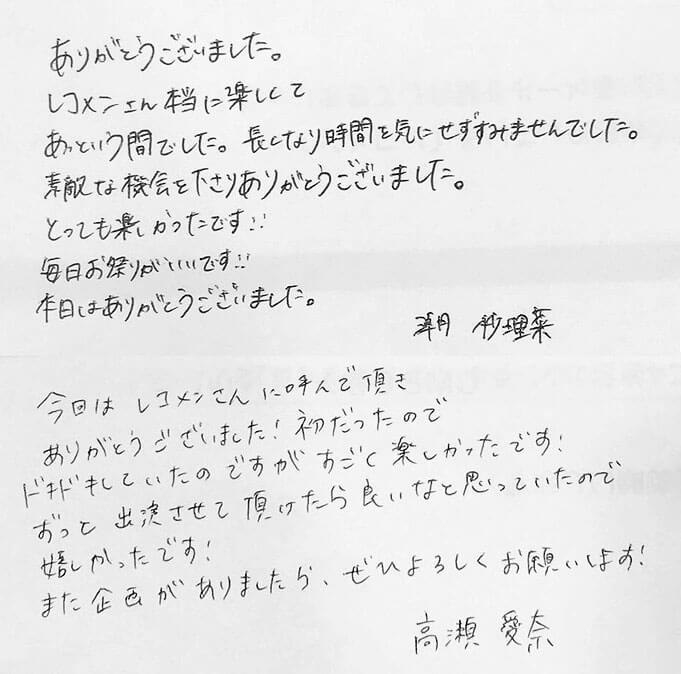 ありがとうございました。
レコメンさん本当に楽しくて
あっという間でした。長くなり時間を気にせずすみませんでした。
素敵な機会を下さりありがとうございました。
とっても楽しかったです!!
毎日お祭りがいいです!!
本日はありがとうございました。
潮 紗理菜
今回はレコメンさんに呼んで頂き
ありがとうございました!初だったので
ドキドキしていたのですがすごく楽しかったです!
ずっと出演させて頂けたら良いなと思っていたので
嬉しかったです!
また企画がありましたら、ぜひよろしくお願いします!
高瀬愛奈